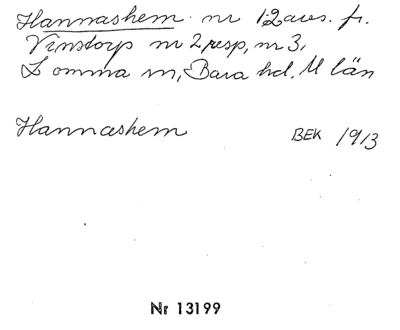 Hannashem nr 1-2 avs. fr.
Vinstorp nr 2 resp, nr 3,
Lomma sn, Bara hd, M län
Hannashem BEK 1913
Nr 13199